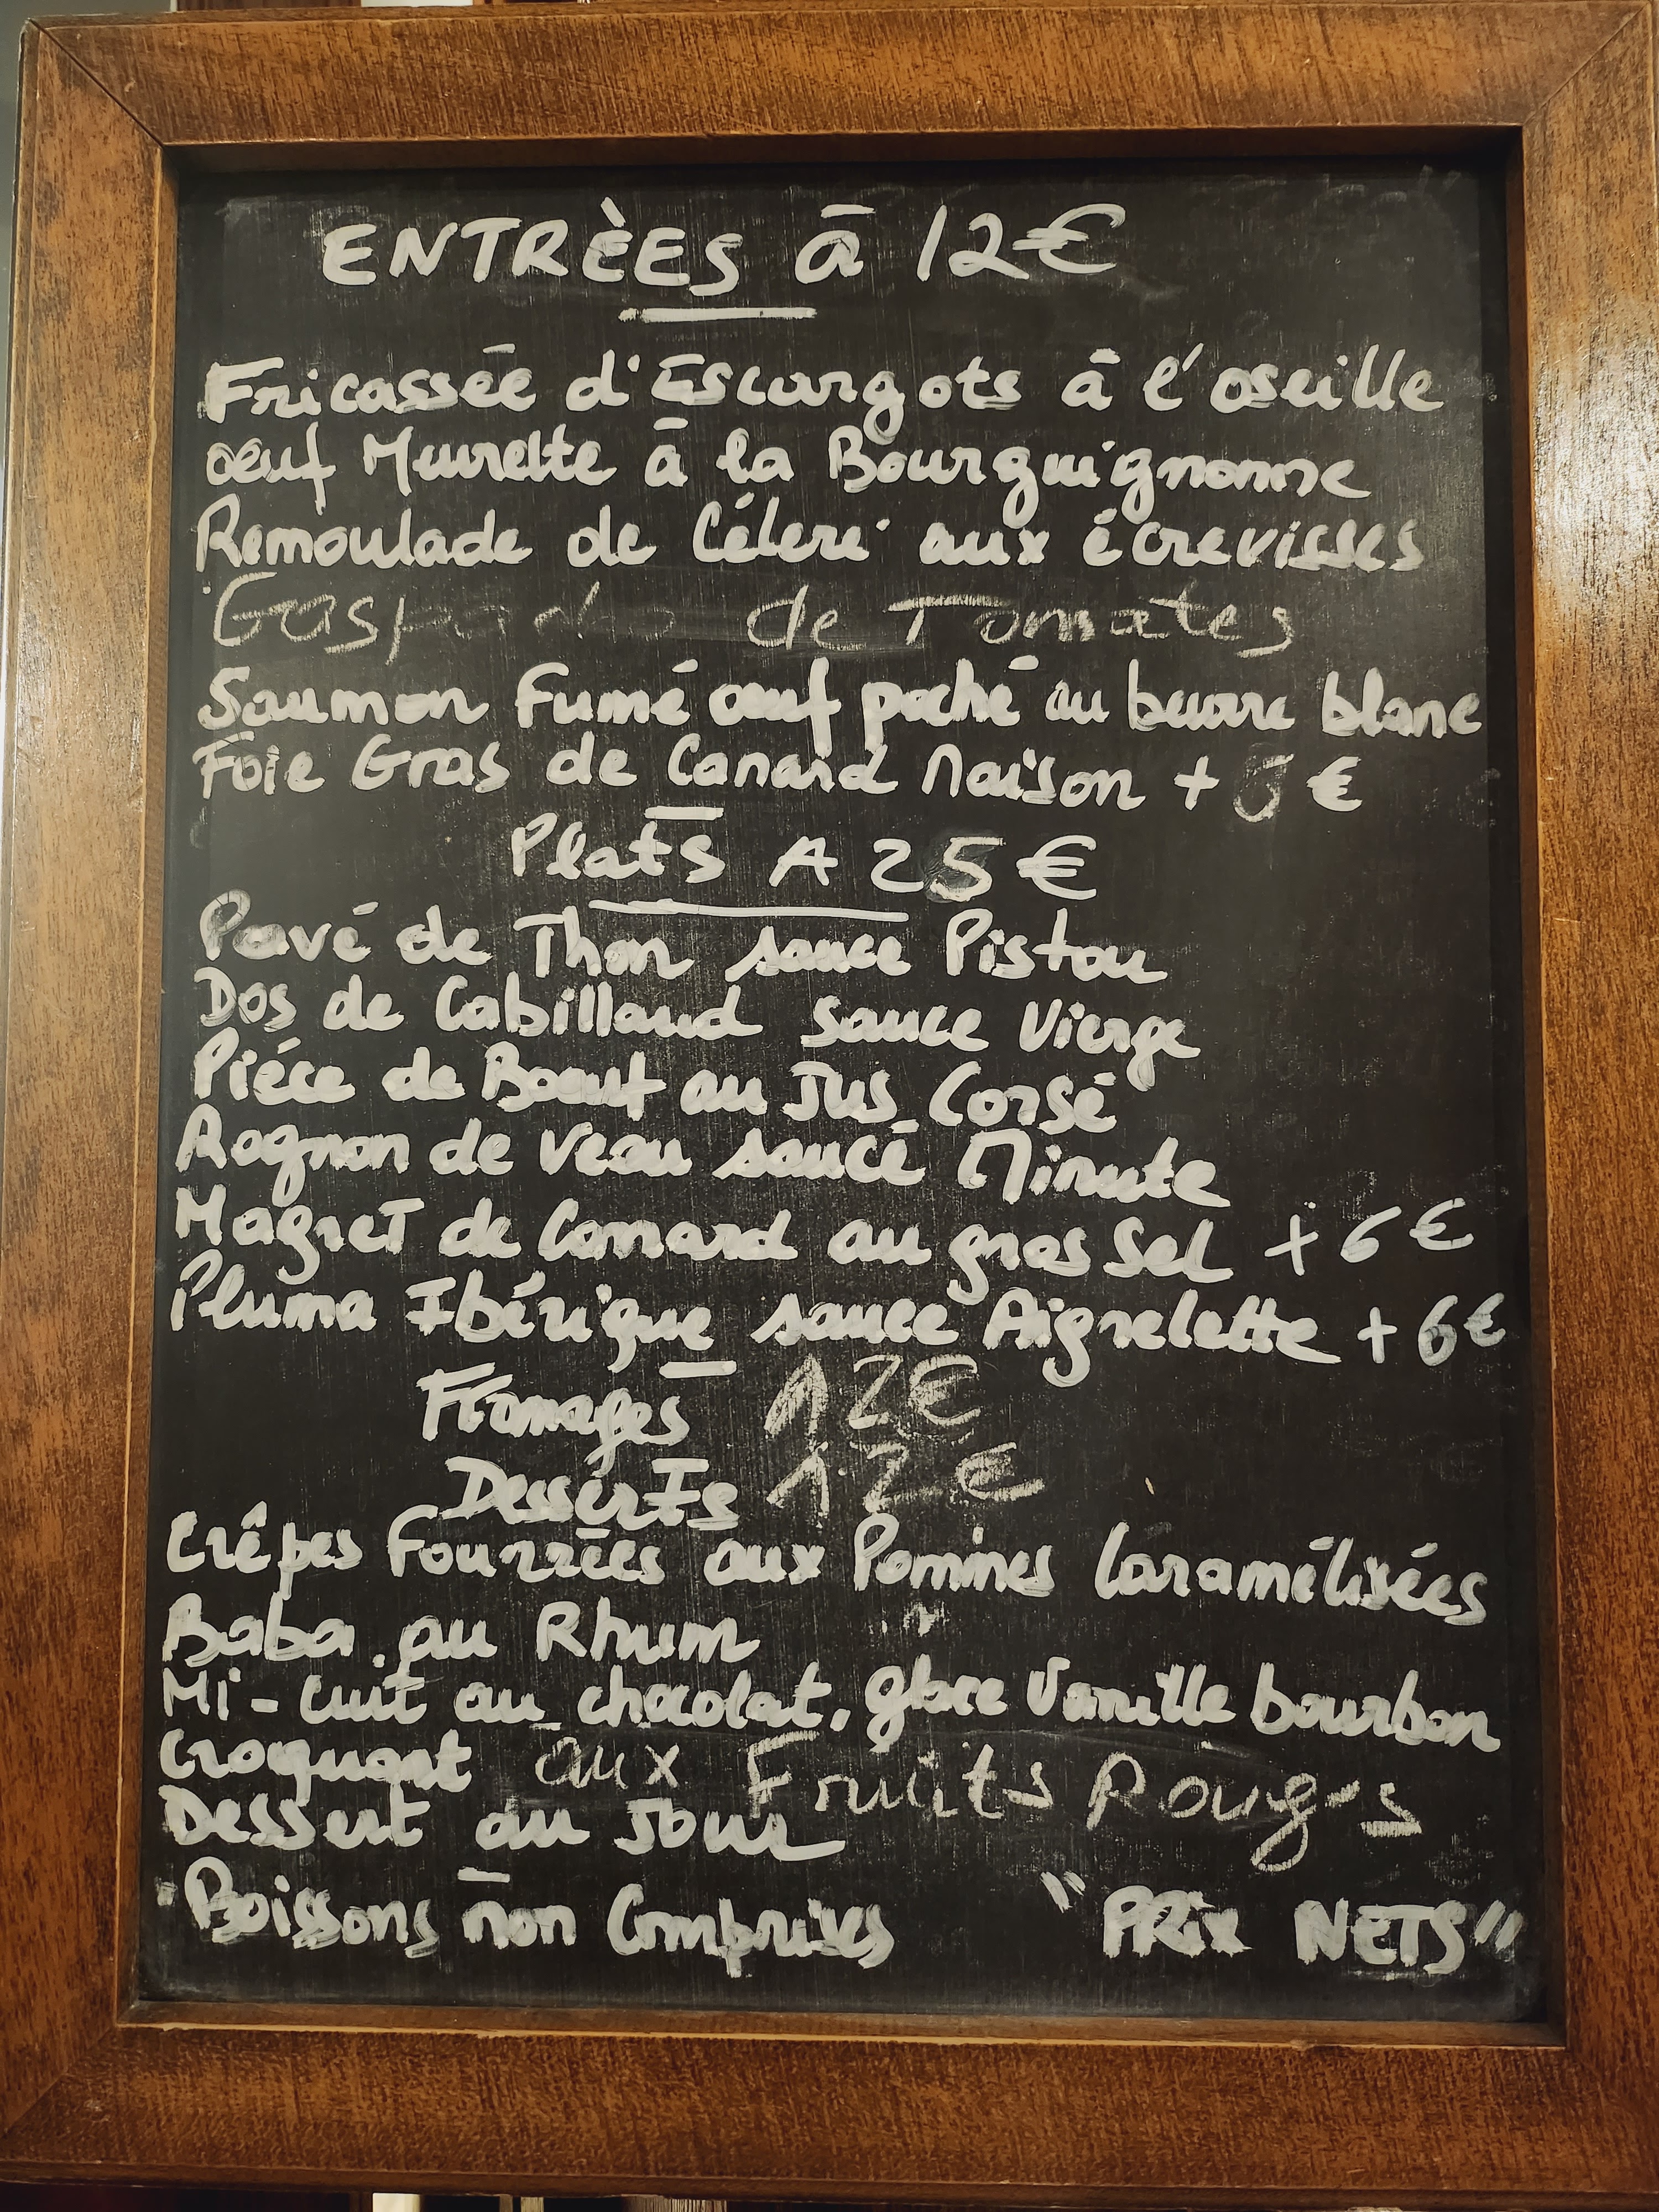 ENTRÈES à 12€
Fricassée d'Escargots à l'oseille
oeuf Meurette à la Bourguignonne
Remoulade de Céleri aux écrevisses
Gaspacho de Tomates
Saumon Fumé oeuf poché au beurre blanc
Foie Gras de Canard Maison + 6 €
Plats A 25 €
Pavé de Thon sauce Pistou
Dos de Cabillaud Sauce Vierge
Piéce de Boeuf au Jus Corsé
Rognon de Veau sauce Minute
Magret de Canard au gros Sel + 6 €
Pluma Ibérique sauce Aigrelette + 6€
Fromages 12€
Desserts 12€
Crêpes Fourrées aux Pommes Caramélisées
Baba au Rhum
Mi-cuit au chocolat, glace Vanille bourbon
Croquant aux Fruits Rouges
Dessert du Jour
Boissons non Comprises "PRix NETS"